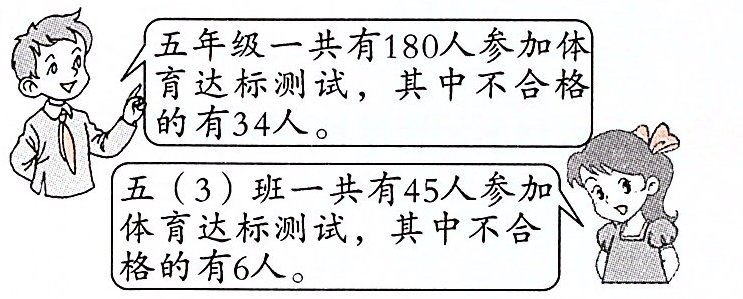 五年级一共有180人参加体
育达标测试，其中不合格
的有34人。
五（3）班一共有45人参加
体育达标测试，其中不合
格的有6人。